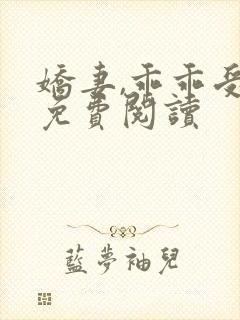 嬌妻,乖乖受
免費閱讀
藍夢袖兒